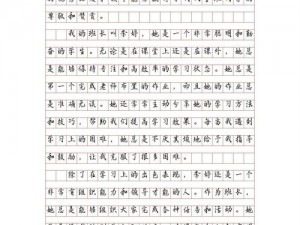 尊敬和赞赏。
我的班长叫李婷，她是一个非常聪明和勤
奋的学生。无论是在课堂上还是在课外，她总
是能够保持专注和高效率的学习状态。她总是
第一个完成老师布置的作业，而且她的作业总
是准确无误。她还常常主动分享她的学习方法
和技巧，帮助我们提高学习效率。每当我遇到
学习上的困难，她总是不厌其烦地给予我指导
和鼓励，让我克服了很多困难。
除了在学习上的出色表现，李婷还是一个
非常有组织能力和领导才能的人。作为班长，
她总是能够组织大家完成各种任务和活动。她